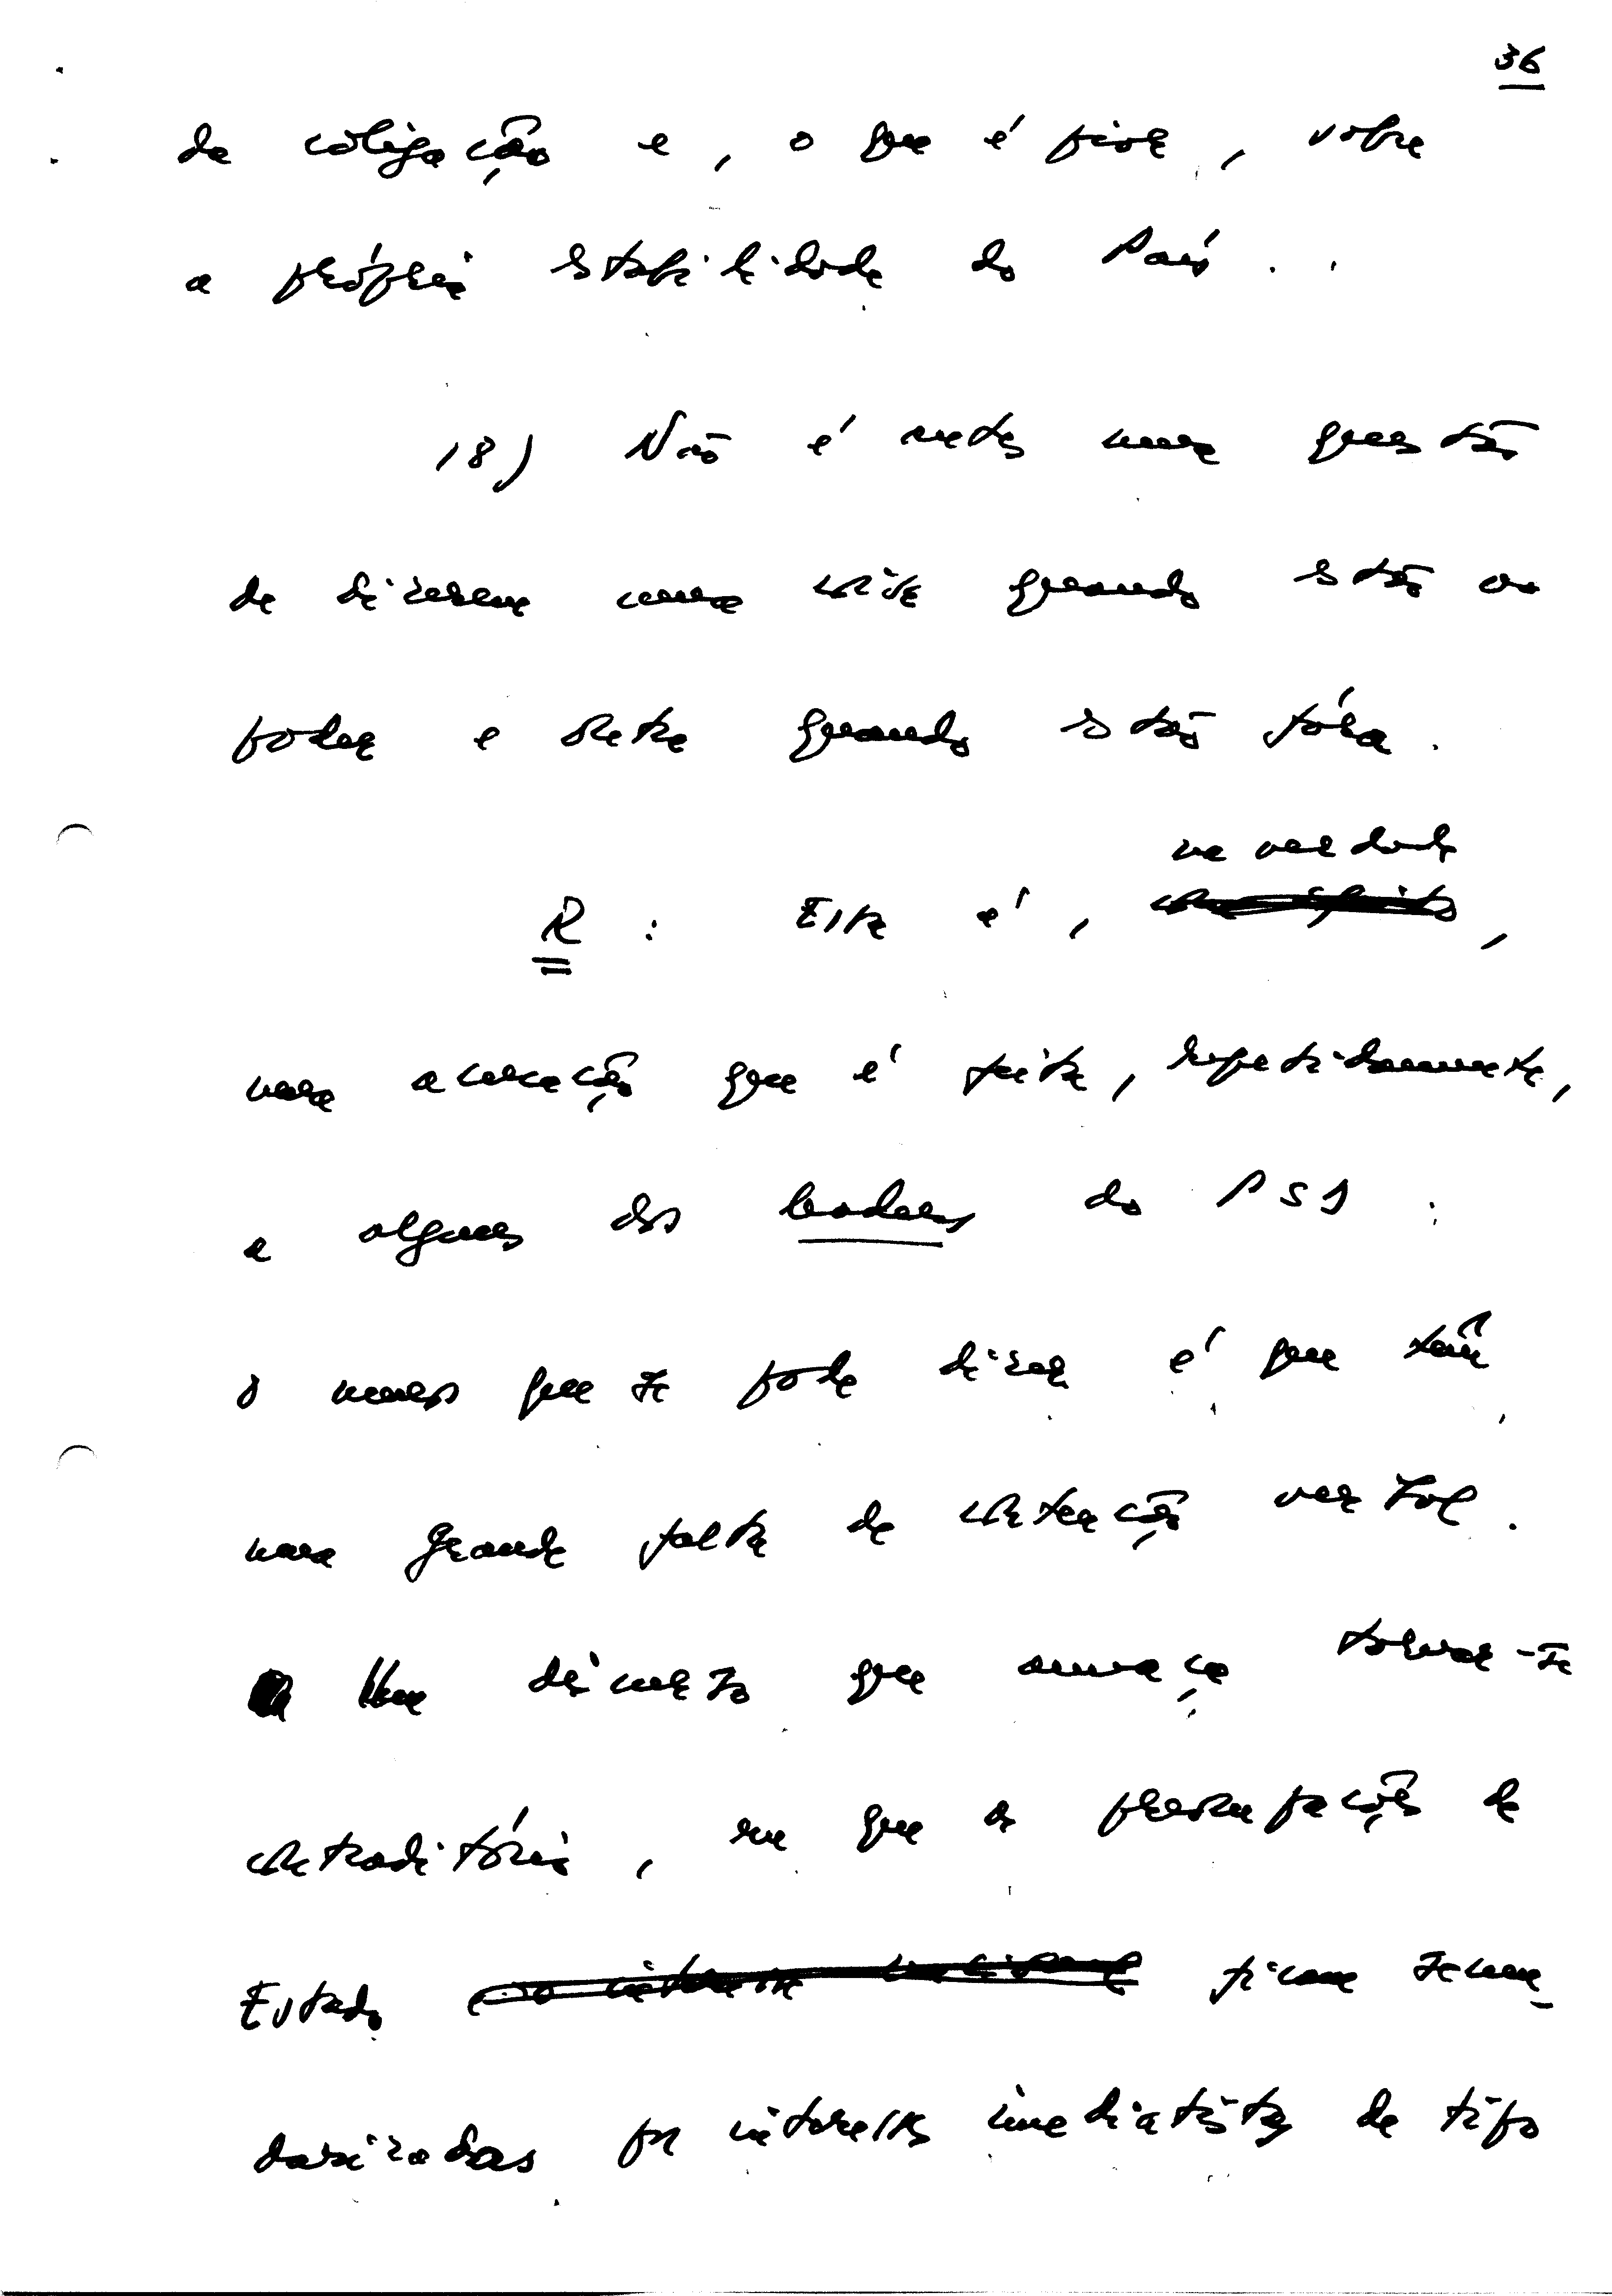 36
da coligação e, o que é pior, sobre
a própria estabilidade do País..
18) Não é antes uma questão
de dizerem uma coisa quando estão no
poder e outra quando estão fóra.
na verdade
R: Essa é, ,
uma acusação que é feita, repetidamente,
a alguns dos leaders do PSD:
o menos que se pode dizer é que têm
uma grande falta de contenção verbal.
Um discurso que ameaça tornar-se
contraditório, em que as preocupações de
Estado ficam secun-
darizadas por interesses imediatistas de tipo